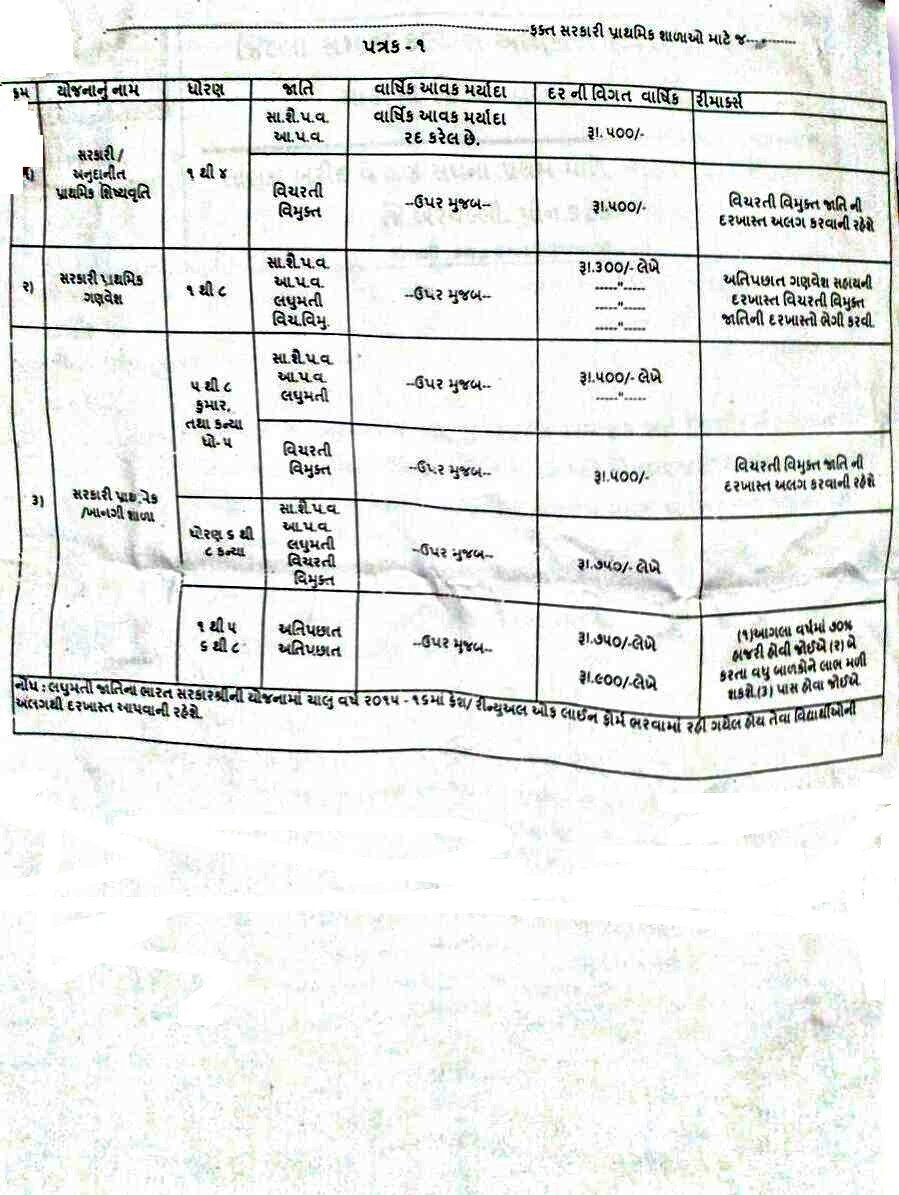 ફક્ત સરકારી પ્રાથમિક શાળાઓ માટે જ
પત્રક - ૧
ક્રમ યોજનાનું નામ ધોરણ જાતિ વાર્ષિક આવક મર્યાદા દર ની વિગત વાર્ષિક રીમાર્ક્સ
સરકારી /
અનુદાનીત
પ્રાથમિક શિષ્યવૃતિ
૧ થી ૪
સા.શૈ.પ.વ.
આ.પ.વ.
વાર્ષિક આવક મર્યાદા
રદ કરેલ છે.
રૂા. ૫૦૦/-
વિચરતી
વિમુક્ત
--ઉપર મુજબ--
રૂા.૫૦૦/-
વિચરતી વિમુક્ત જાતિ ની
દરખાસ્ત અલગ કરવાની રહેશે
૨)
સરકારી પ્રાથમિક
ગણવેશ
૧ થી ૮
સા.શૈ.પ.વ.
આ.પ.વ.
લઘુમતી
વિચ.વિમુ.
--ઉપર મુજબ--
રૂા.૩૦૦/- લેખે
-----"-----
-----"-----
-----"-----
અતિપછાત ગણવેશ સહાયની
દરખાસ્ત વિચરતી વિમુક્ત
જાતિની દરખાસ્તો ભેગી કરવી.
૩)
સરકારી
/ખાનગી શાળા
૫ થી ૮
કુમાર,
તથા કન્યા
ધો- ૫
સા.શૈ.પ.વ
આ.પ.વ.
લઘુમતી
--ઉપર મુજબ--
રૂા.૫૦૦/- લેખે
-----"-----
વિચરતી
વિમુક્ત
--ઉપર મુજબ--
રૂા.૫૦૦/-
વિચરતી વિમુક્ત જાતિ ની
દરખાસ્ત અલગ કરવાની રહેશે
ધોરણ ૬ થી
૮ કન્યા
સા.શૈ.પ.વ.
આ.પ.વ.
લઘુમતી
વિચરતી
વિમુક્ત
--ઉપર મુજબ--
રૂા.૭૫૦/- લેખે
૧ થી ૫
૬ થી ૮
અતિપછાત
અતિપછાત
--ઉપર મુજબ--
રૂા.૭૫૦/-લેખે
રૂા.૯૦૦/-લેખે
(૧)આગલા વર્ષમાં ૭૦%
હાજરી હોવી જોઈએ (૨) બે
કરતા વધુ બાળકોને લાભ મળી
શકશે.(૩) પાસ હોવા જોઈએ.
નોંધ : લઘુમતી જાતિના ભારત સરકારશ્રીની યોજનામાં ચાલુ વર્ષ ૨૦૧૫ - ૧૬માં ફ્રેશ/ રીન્યુઅલ ઓફ લાઈન ફોર્મ ભરવામાં રહી ગયેલ હોય તેવા વિદ્યાર્થીઓની
અલગથી દરખાસ્ત આપવાની રહેશે.